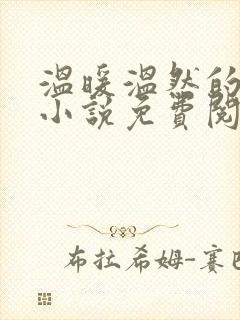 溫暖溫然的
小說免費閱
布拉希姆-賽巴